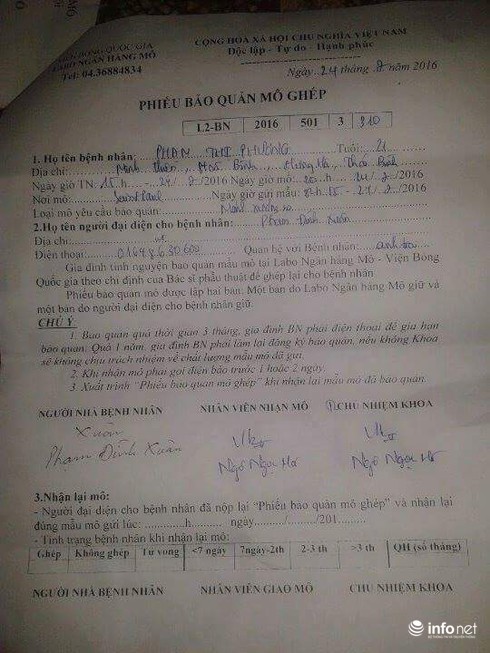 BỎNG QUỐC GIA
LABO NGÂN HÀNG MÔ
Tel: 04.36884834
CỘNG HOÀ XÃ HỘI CHỦ NGHĨA VIỆT NAM
Độc lập - Tự do - Hạnh phúc
Ngày 24 tháng 2 năm 2016
PHIẾU BẢO QUẢN MÔ GHÉP
L2-BN 2016 501 3 910
1. Họ tên bệnh nhân: PHAN THỊ PHƯƠNG Tuổi: 21
Địa chỉ: Minh Bình, Thái Bình
Ngày giờ TN: 15.h - 24/2/2016 Ngày giờ mổ: 20.h 24/2/2016
Nơi mổ: Saint Paul Ngày giờ gửi mẫu:
Loại mô yêu cầu bảo quản: Mảnh xương sọ
2.Họ tên người đại diện cho bệnh nhân: Phạm Đình Xuân
Địa chỉ: nt
Điện thoại: 01648630600 Quan hệ với Bệnh nhân: anh
Gia đình tình nguyện bảo quản mẫu mô tại Labo Ngân hàng Mô - Viện Bỏng
Quốc gia theo chỉ định của Bác sĩ phẫu thuật để ghép lại cho bệnh nhân
Phiếu bảo quản mô được lập hai bản: Một bản do Labo Ngân hàng Mô giữ và
một bản do người đại diện cho bệnh nhân giữ.
CHÚ Ý:
1. Bảo quản quá thời gian 3 tháng, gia đình BN phải điện thoại để gia hạn
bảo quản. Quá 1 năm, gia đình BN phải làm lại đăng ký bảo quản, nếu không Khoa
sẽ không chịu trách nhiệm về chất lượng mẫu mô đã gửi.
2. Khi nhận mô phải gọi điện báo trước 1 hoặc 2 ngày.
3. Xuất trình "Phiếu bảo quản mô ghép" khi nhận lại mẫu mô đã bảo quản.
NGƯỜI NHÀ BỆNH NHÂN NHÂN VIÊN NHẬN MÔ CHỦ NHIỆM KHOA
Xuân
Phạm Đình Xuân Ngô Ngọc Hà Ngô Ngọc Hà
3.Nhận lại mô:
- Người đại diện cho bệnh nhân đã nộp lại "Phiếu bảo quản mô ghép" và nhận lại
đúng mẫu mô gửi lúc: ..............h........... ngày........./........./201.........
- Tình trạng bệnh nhân khi nhận lại mô:
Ghép Không ghép Tử vong <7 ngày 7ngày-2th 2-3 th >3 th QH (số tháng)
NGƯỜI NHÀ BỆNH NHÂN NHÂN VIÊN GIAO MÔ CHỦ NHIỆM KHOA
infonet